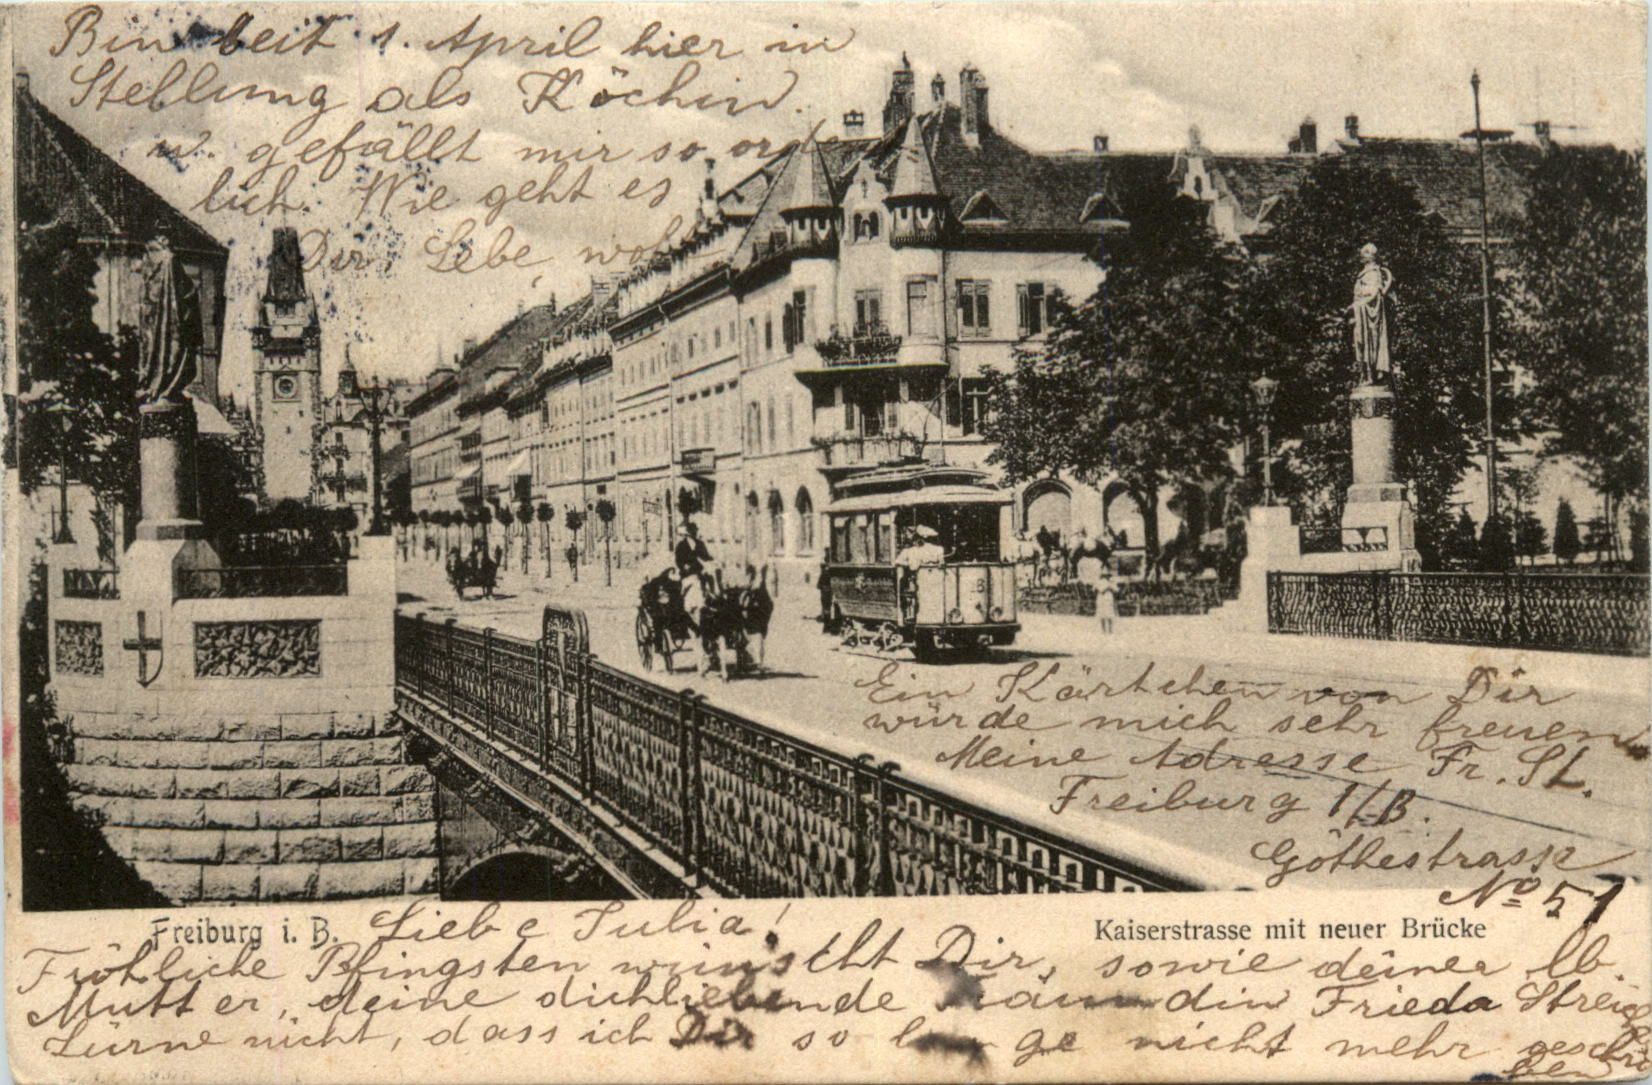 Bin seit 1. April hier in
Stellung als Köchin
u. gefällt mir so orde
lich. Wie geht es
Dir, Lebe wohl
Ein Kärtchen von Dir
würde mich sehr freuen
Meine Adresse Fr. St.
Freiburg i/B.
Göthestrasse
No 51
Freiburg i. B. Liebe Julia!
Kaiserstrasse mit neuer Brücke
Fröhliche Pfingsten wünscht Dir, sowie deiner lb.
Mutter, deine dichliebende din Frieda
Zürne nicht, dass ich Dir so lange nicht mehr geschrie
ben